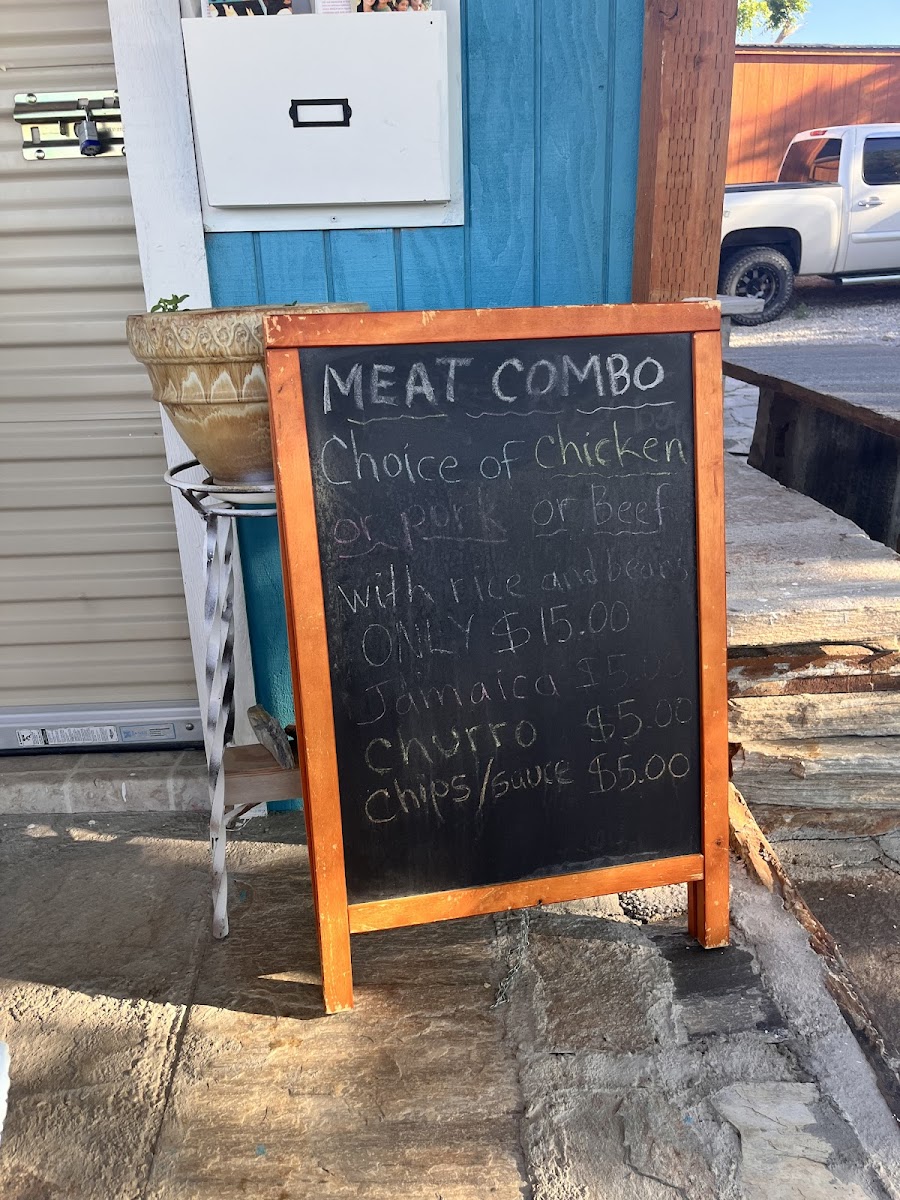 MEAT COMBO
Choice of Chicken
or pork or Beef
with rice and beans
ONLY $15.00
Jamaica $5.00
Churro $5.00
Chips/sauce $5.00